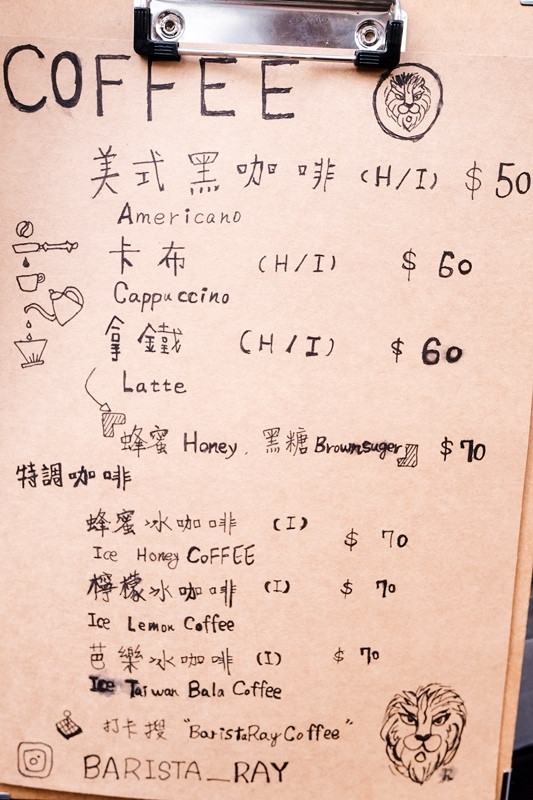 COFFEE
美式黑咖啡 (H/I) $50
Americano
卡布 (H/I) $60
Cappuccino
拿鐵 (H/I) $60
Latte
蜂蜜 Honey, 黑糖 Brownsuger $70
特調咖啡
蜂蜜冰咖啡 (I) $70
Ice Honey COFFEE
檸檬冰咖啡 (I) $70
Ice Lemon Coffee
芭樂冰咖啡 (I) $70
Ice Taiwan Bala Coffee
打卡搜 "BaristaRay Coffee"
BARISTA_RAY